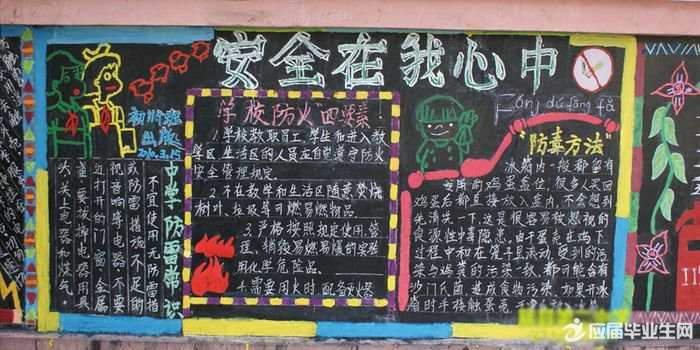 安全在我心中
初118班
出版
2010.3.25
中学防雷常识
不宜使用无防雷措
或防雷措施不足的
视音响等电器不要
近打开的门窗金属
雀要拔掉电器用具
头关上电器和煤气。
学校防火"四要素！
1.学校教职员工、学生和进入教
学区、生活区的人员应自觉遵守防火
安全管理规定。
2.不在教学和生活区随意焚烧
树叶、垃圾等可燃易燃物品。
3.严格按照规定使用、管
理、销毁易燃易爆的实验
用化学危险品。
4.需要用火时,配备灭火器
Fáng dú fāng fǎ
"防毒方法"
冰箱内一般都留有
专用的鸡蛋盖位,很多人买回
鸡蛋后都直接放入盖内,不会想到
先清洗一下,这是很容易被忽视的
食源性中毒隐患。由于蛋壳在鸡下
过程中和在笼子里流动,受到的污
染与鸡粪的污染一致,都可能含有
沙门氏菌,造成食物污染,如果开冰
箱时手接触蛋壳
应届毕业生网